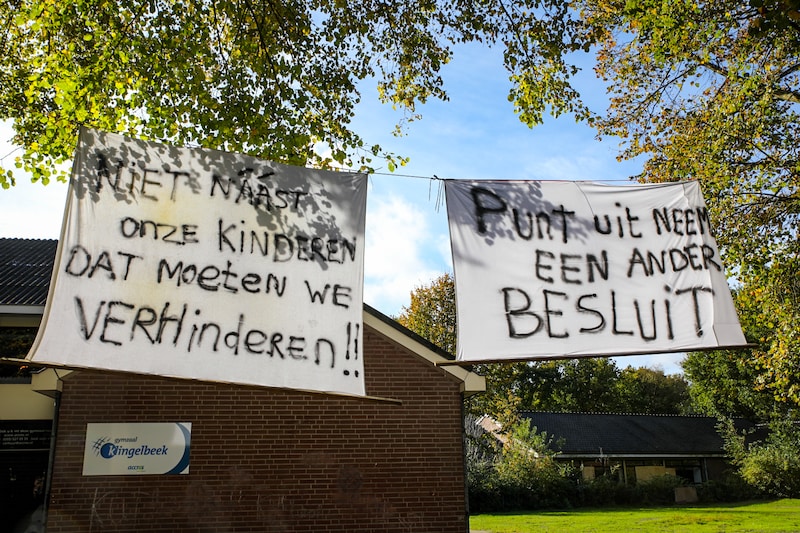 NIET NÁÁST
ONZE KINDEREN
DAT MOETEN WE
VERHINDEREN!!
PUNT UIT NEEM
EEN ANDER
BESLUIT
gymzaal
Klingelbeek
accres